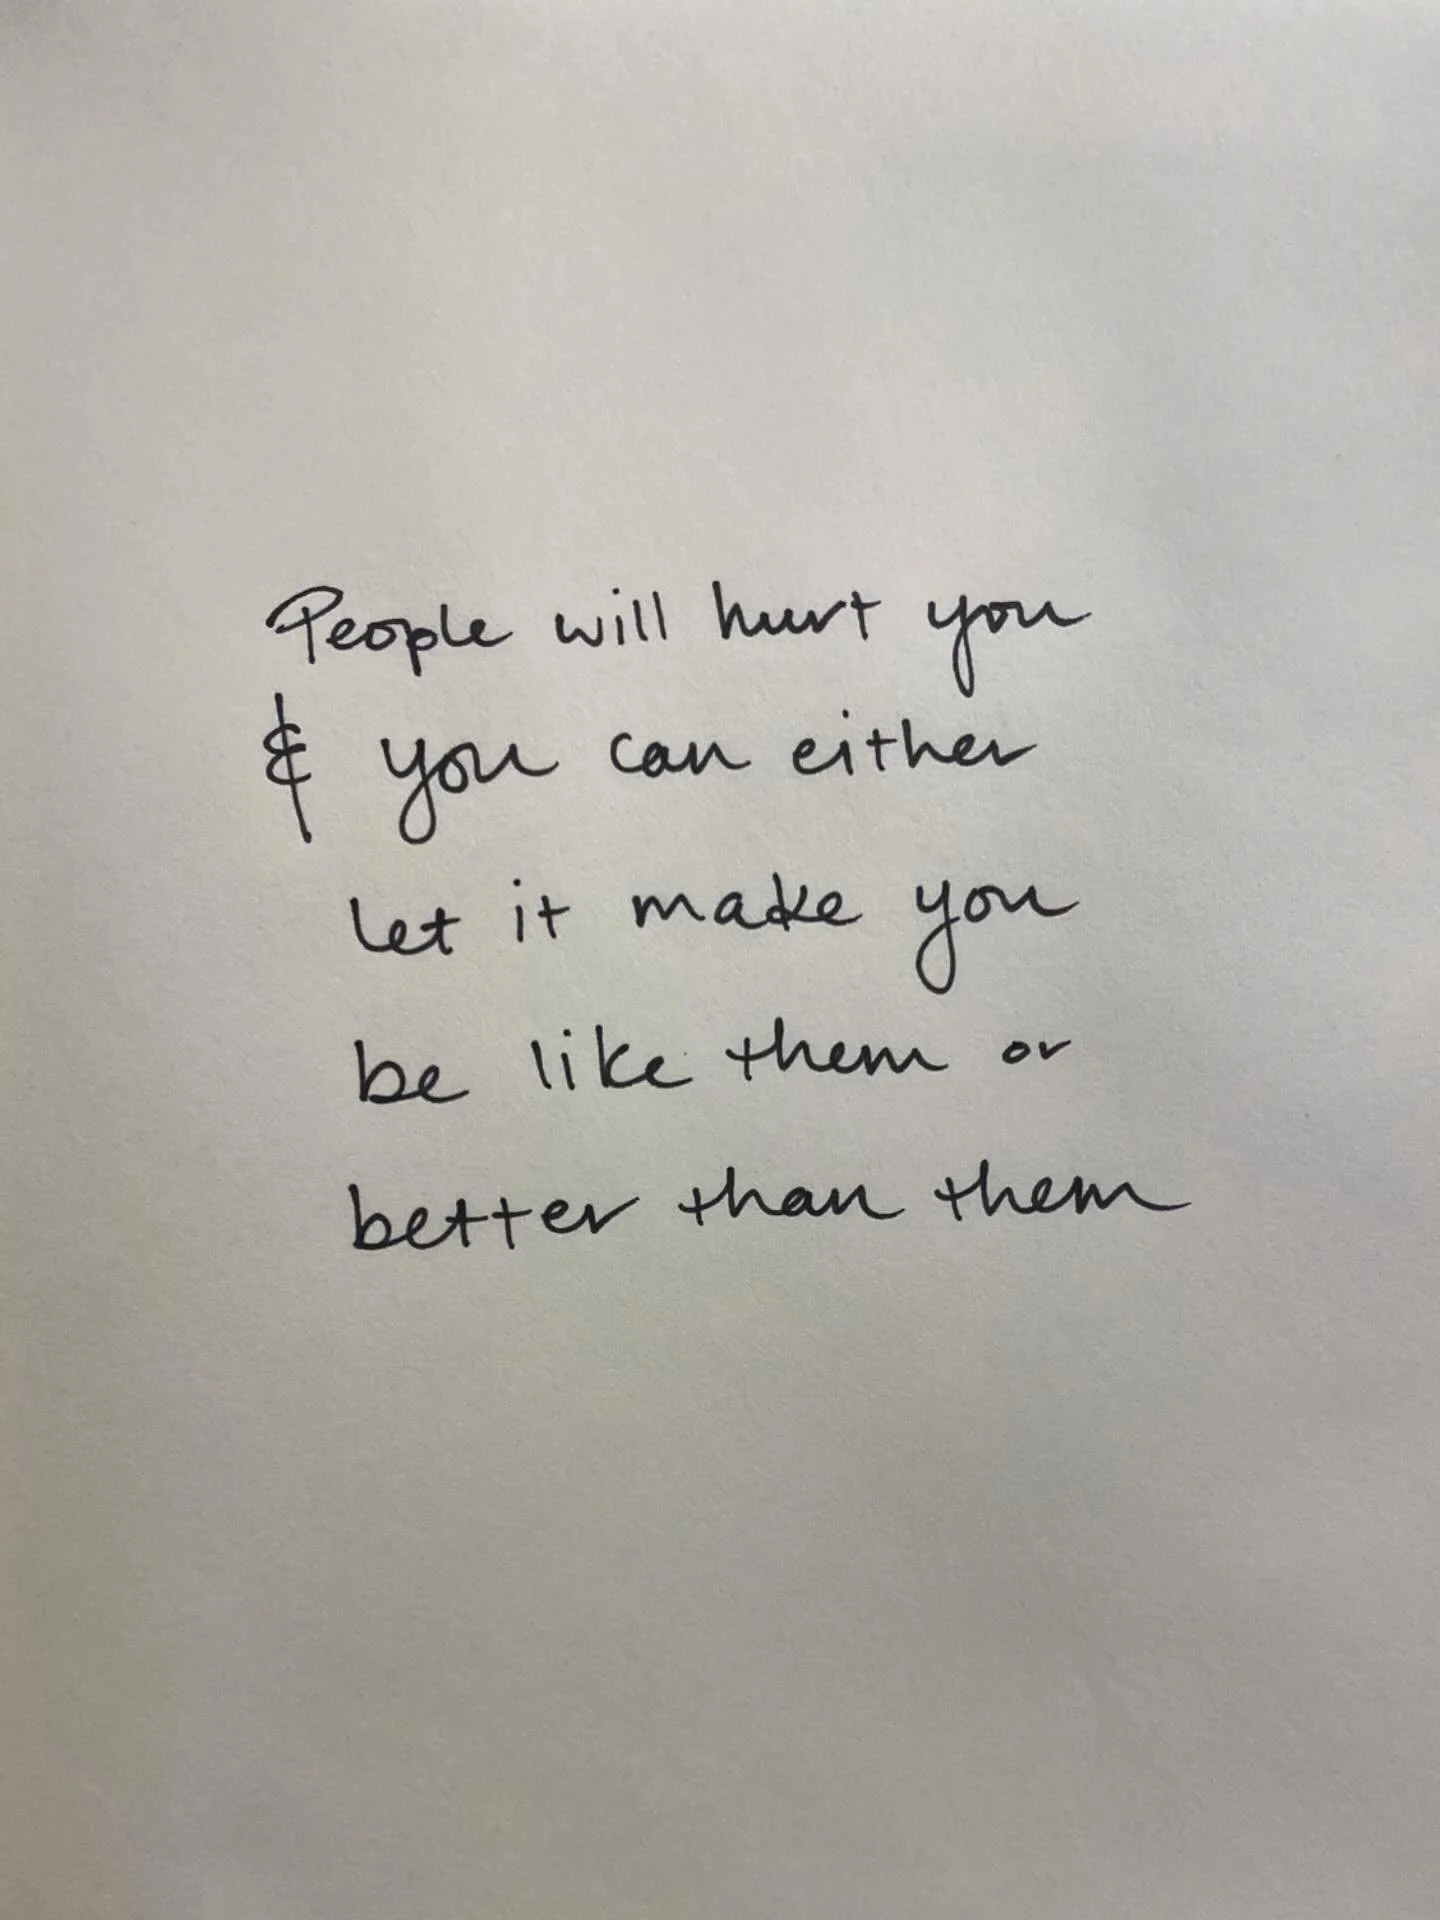 People will hurt you
& you can either
let it make you
be like them or
better than them